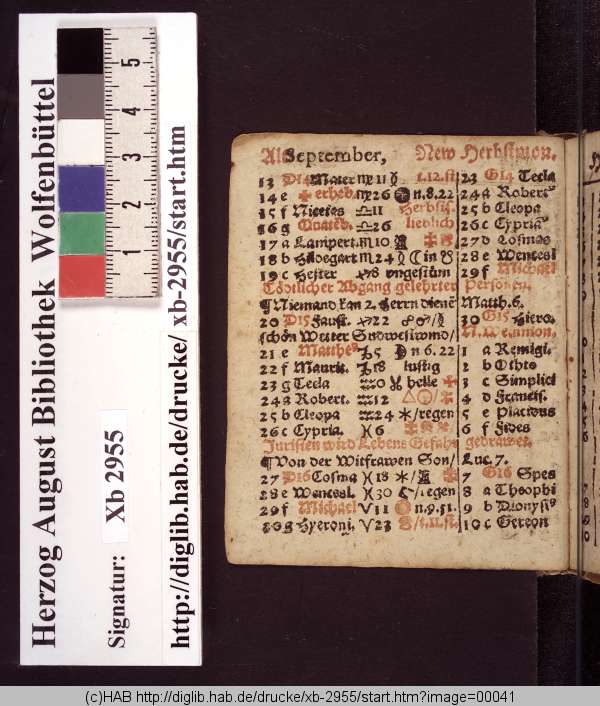 Herzog August Bibliothek Wolfenbüttel
Signatur: Xb 2955
http://diglib.hab.de/drucke/ xb-2955/start.htm
5
4
3
2
1
September, New Herbstmon.
13 D14 Mater 11 1.12.st 23 G14 Tecla
14 e erheb. 26 n.8.22 24 a Robert
15 f Nicetas 11 Herbst. 25 b Cleopa
16 g Quateb. 26 lieblich 26 c Cypria
17 a Lampert. 10 27 d Cosmas
18 b Hildegart 24 in 28 e Wencesl
19 c Hester 8 ungestüm 29 f Michael
Tödtlicher Abgang gelehrter Personen.
¶ Niemand kan 2. Herrn dienē Matth. 6.
20 D15 Faust. 22 30 G15 Hiero.
schön Wetter Sudwestwind/
21 e Matthe 5 n 6.22 1 a Remigi.
22 f Maurit. 18 lustig 2 b Otho
23 g Tecla 0 helle 3 c Simplici
24 a Robert. 12 4 d Francis.
25 b Cleopa 24 /regen 5 e Placidus
26 c Cypria. 6 6 f Fides
Juristen wird Lebens Gefahr gedrawet.
¶ Von der Witfrawen Son/ Luc. 7.
27 D16 Cosma 18 7 G16 Spes
28 e Wencesl. 30 /regen 8 a Theophi
29 f Michael 11 n.9.51. 9 b Dionysi
30 g Hyeroni. 23 /1.11.st. 10 c Gereon
(c)HAB http://diglib.hab.de/drucke/xb-2955/start.htm?image=00041